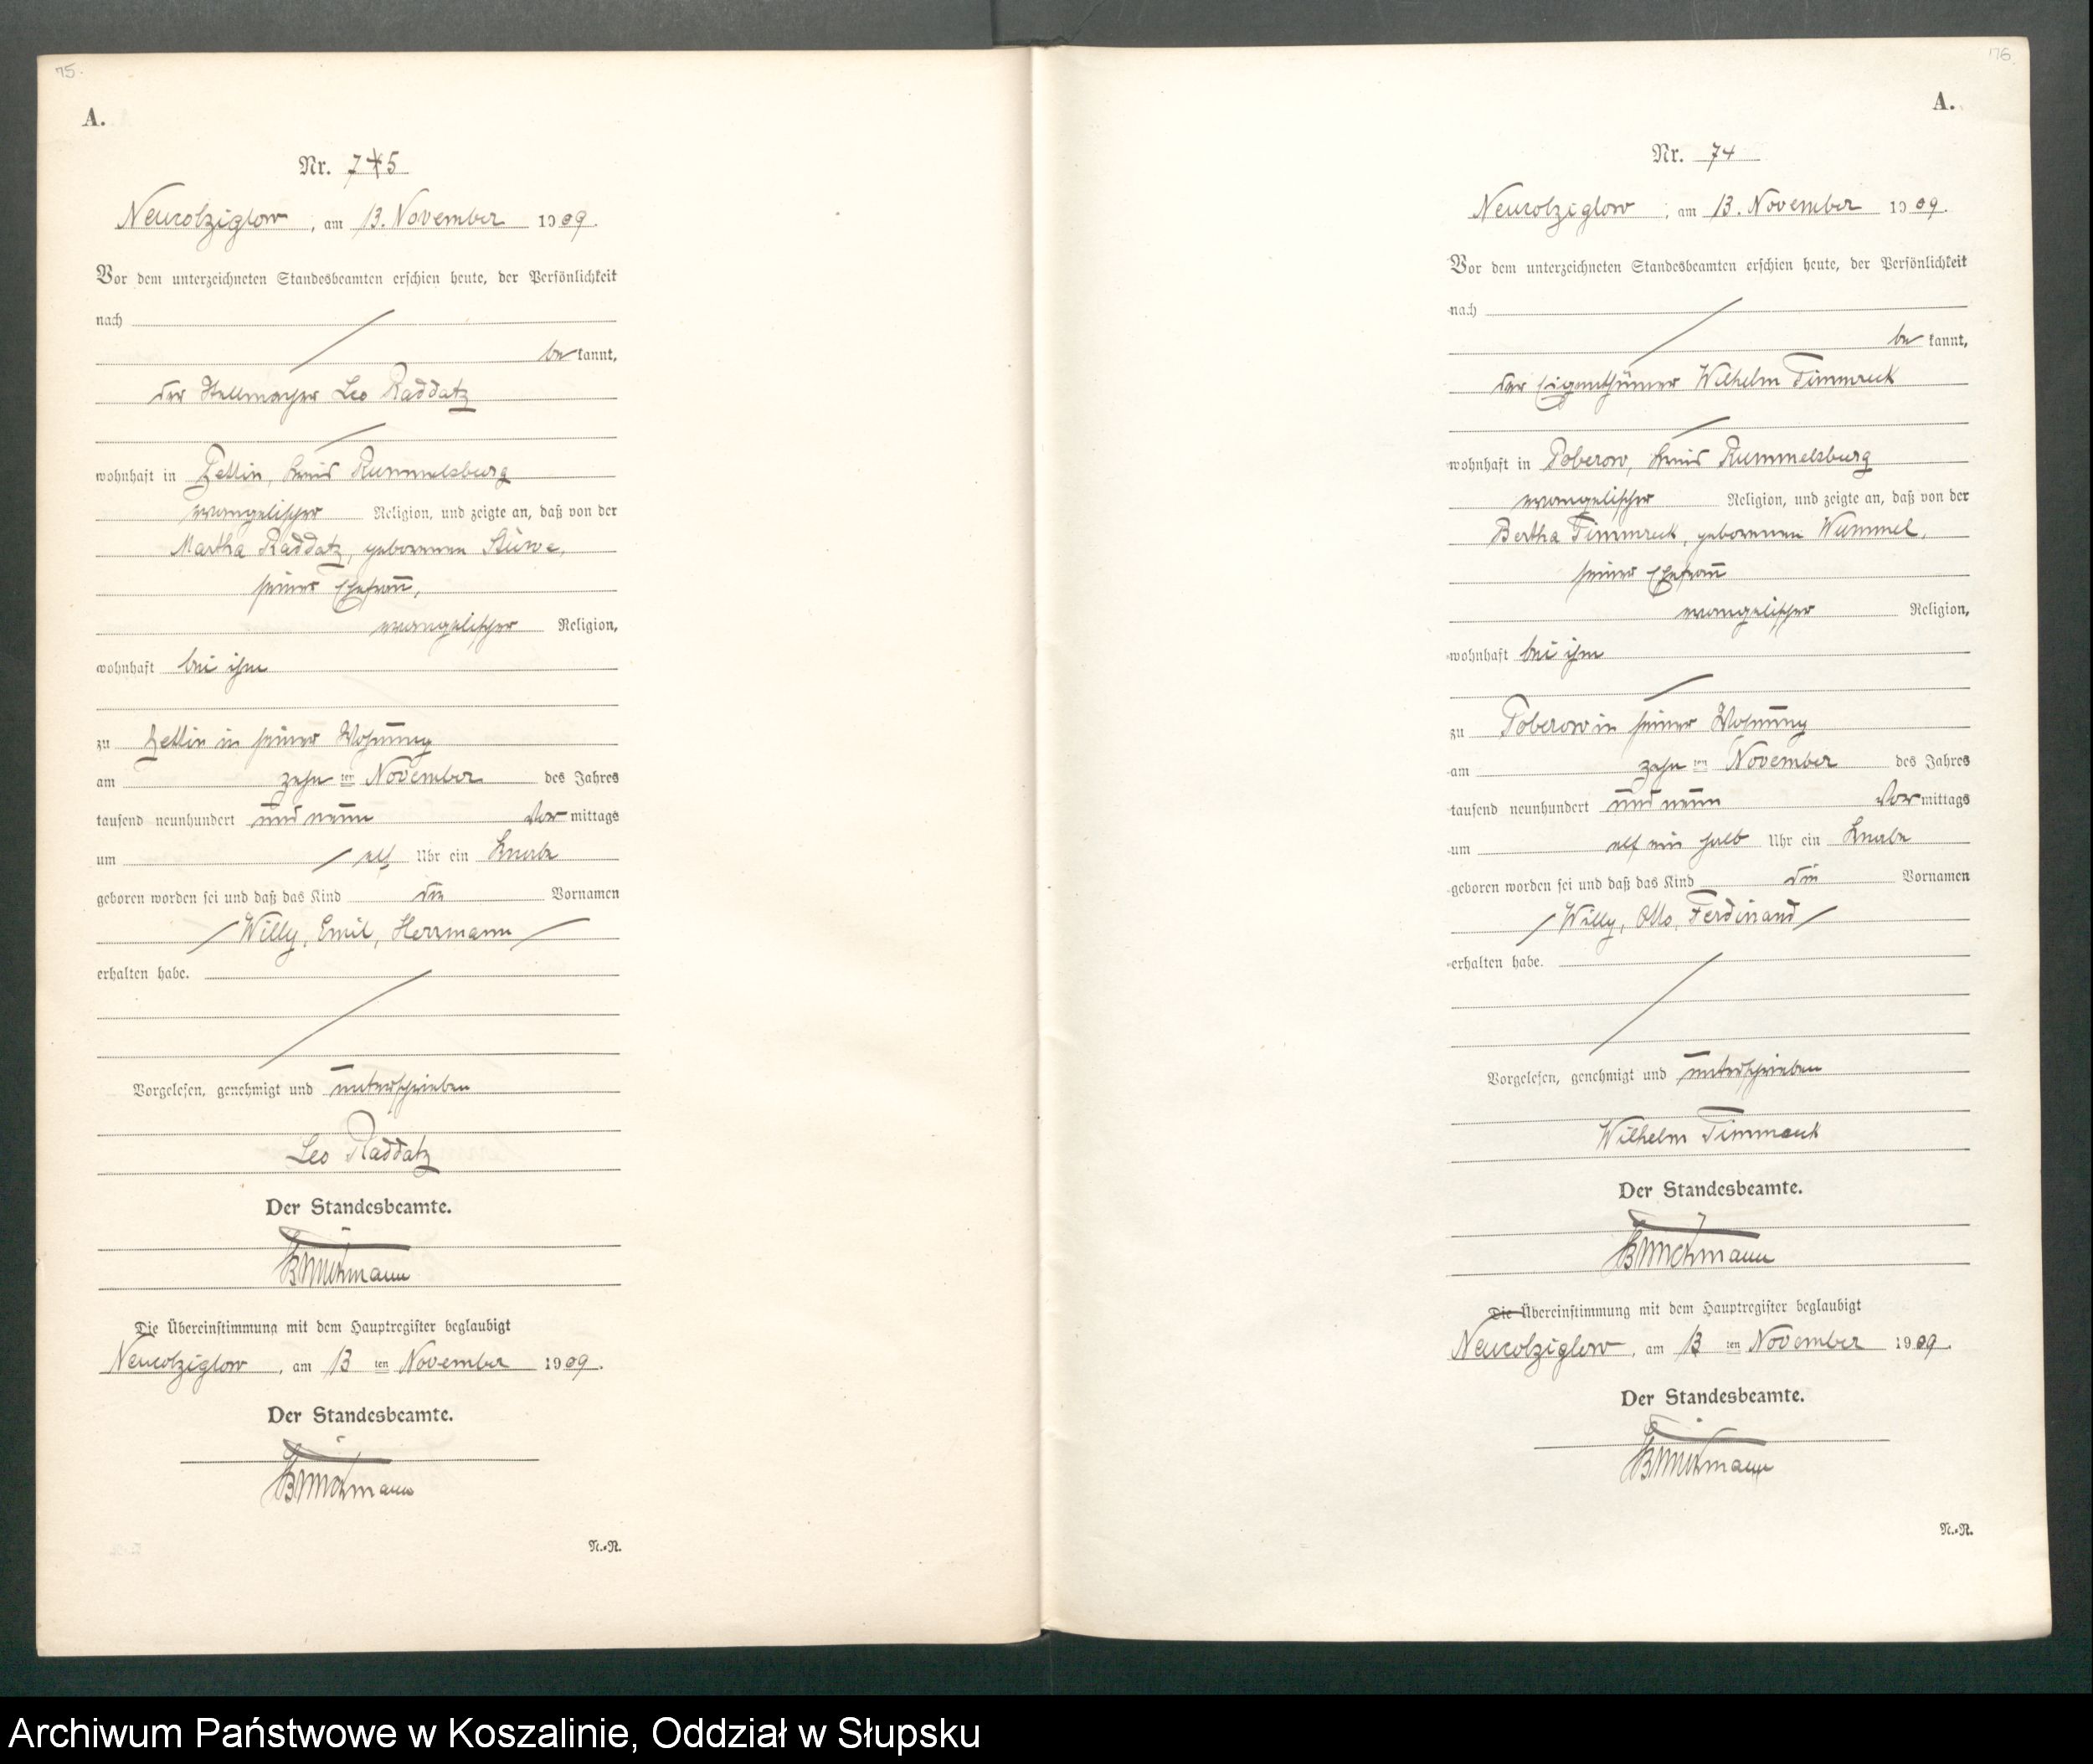 75.
A.
Nr. 745
Neukolziglow, am 13. November 1909.
Vor dem unterzeichneten Standesbeamten erschien heute, der Persönlichkeit
nach
be kannt,
der Stellmacher Leo Raddatz
wohnhaft in Zettin, Kreis Rummelsburg
evangelischer Religion, und zeigte an, daß von der
Martha Raddatz, geborenen Stüwe,
seiner Ehefrau,
evangelischer Religion,
wohnhaft bei ihm
zu Zettin in seiner Wohnung
am zehn ten November des Jahres
tausend neunhundert und neun Vor mittags
um elf Uhr ein Knabe
geboren worden sei und daß das Kind die Vornamen
Willy, Emil, Herrmann
erhalten habe.
Vorgelesen, genehmigt und unterschrieben
Leo Raddatz
Der Standesbeamte.
Die Übereinstimmung mit dem Hauptregister beglaubigt
Neukolziglow, am 13 ten November 1909.
Der Standesbeamte.
N.=R.
76.
A.
Nr. 74
Neukolziglow, am 13. November 1909.
Vor dem unterzeichneten Standesbeamten erschien heute, der Persönlichkeit
nach
be kannt,
der Eigenthümer Wilhelm Timmreck
wohnhaft in Poberow, Kreis Rummelsburg
evangelischer Religion, und zeigte an, daß von der
Bertha Timmreck, geborenen Wummel,
seiner Ehefrau
evangelischer Religion,
wohnhaft bei ihm
zu Poberow in seiner Wohnung
am zehn ten November des Jahres
tausend neunhundert und neun Vor mittags
um elf ein halb Uhr ein Knabe
geboren worden sei und daß das Kind die Vornamen
Willy, Otto, Ferdinand
erhalten habe.
Vorgelesen, genehmigt und unterschrieben
Wilhelm Timmreck
Der Standesbeamte.
Die Übereinstimmung mit dem Hauptregister beglaubigt
Neukolziglow, am 13 ten November 1909.
Der Standesbeamte.
N.=R.
Archiwum Państwowe w Koszalinie, Oddział w Słupsku